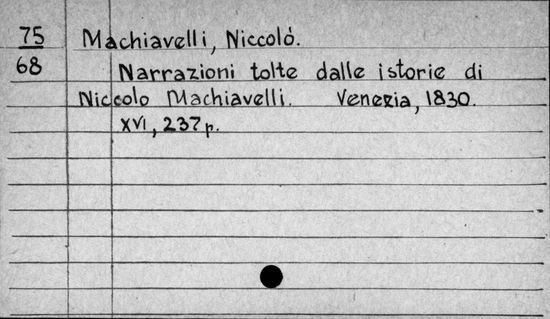 75 Machiavelli, Niccolò.
68 Narrazioni tolte dalle istorie di
Niccolo Machiavelli. Venezia, 1830.
XVI, 237 p.